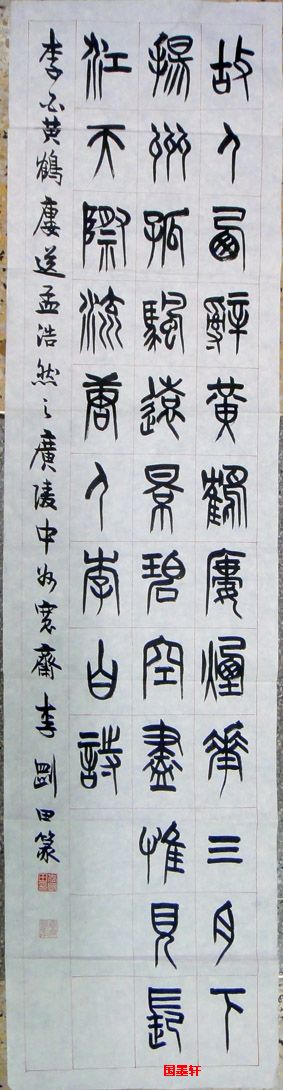 故人西辭黃鶴廔煙華三月下
揚州孤颿遠景碧空盡惟見長
江天際流唐人李白詩
李白黄鶴廔送孟浩然之廣陵中州寬齋李剛田篆
国墨轩